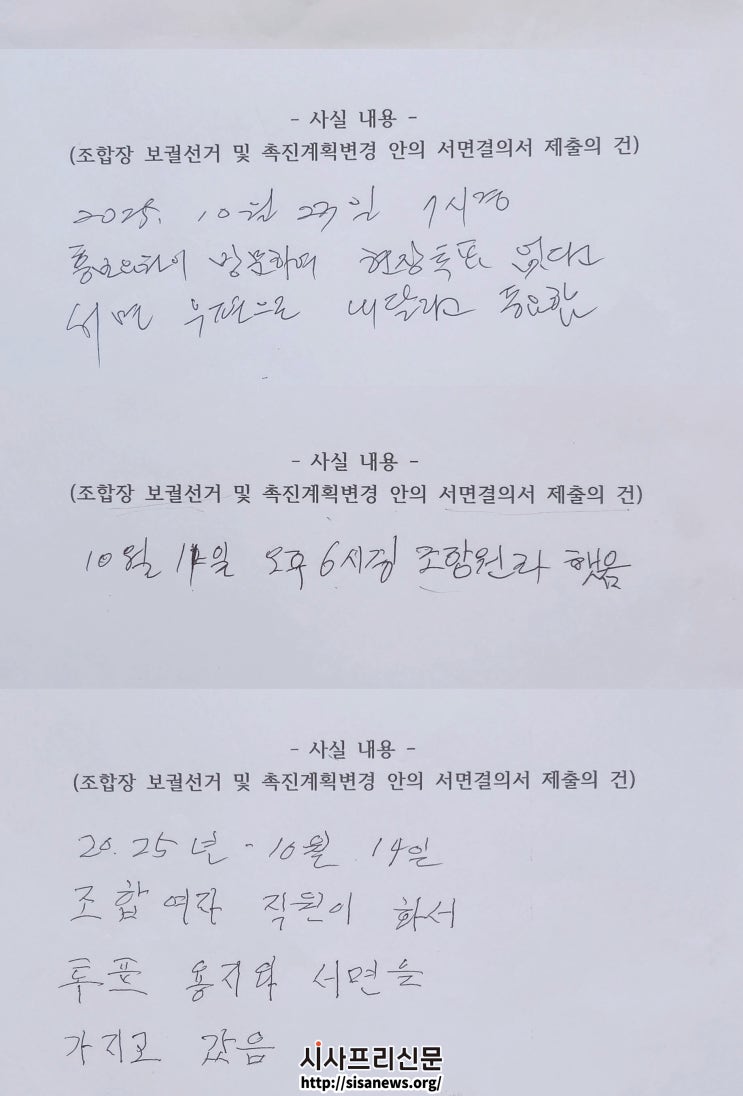 - 사실 내용 -
(조합장 보궐선거 및 촉진계획변경 안의 서면결의서 제출의 건)
2025. 10월 23일 1시경
방문하여 현장투표 없다고
서면 우편으로 내달라고
- 사실 내용 -
(조합장 보궐선거 및 촉진계획변경 안의 서면결의서 제출의 건)
10월 일 오후 6시경 조합원라 했음
- 사실 내용 -
(조합장 보궐선거 및 촉진계획변경 안의 서면결의서 제출의 건)
20.25년 - 10월 14일
조합 여자 직원이 화서
투표 용지와 서면을
가지고 갔음
시사프리신문
http://sisanews.org/